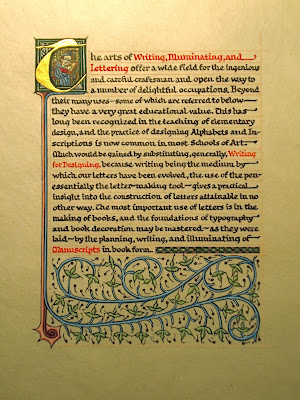 The arts of Writing, Illuminating, and
Lettering offer a wide field for the ingenious
and careful craftsman and open the way to
a number of delightful occupations. Beyond
their many uses—some of which are referred to below—
they have a very great educational value. This has
long been recognized in the teaching of elementary
design, and the practice of designing Alphabets and In-
scriptions is now common in most Schools of Art.
Much would be gained by substituting, generally, Writing
for Designing, because writing being the medium by
which our letters have been evolved, the use of the pen—
essentially the letter-making tool—gives a practical
insight into the construction of letters attainable in no
other way. The most important use of letters is in the
making of books, and the foundations of typography
and book decoration may be mastered—as they were
laid—by the planning, writing, and illuminating of
Manuscripts in book form.